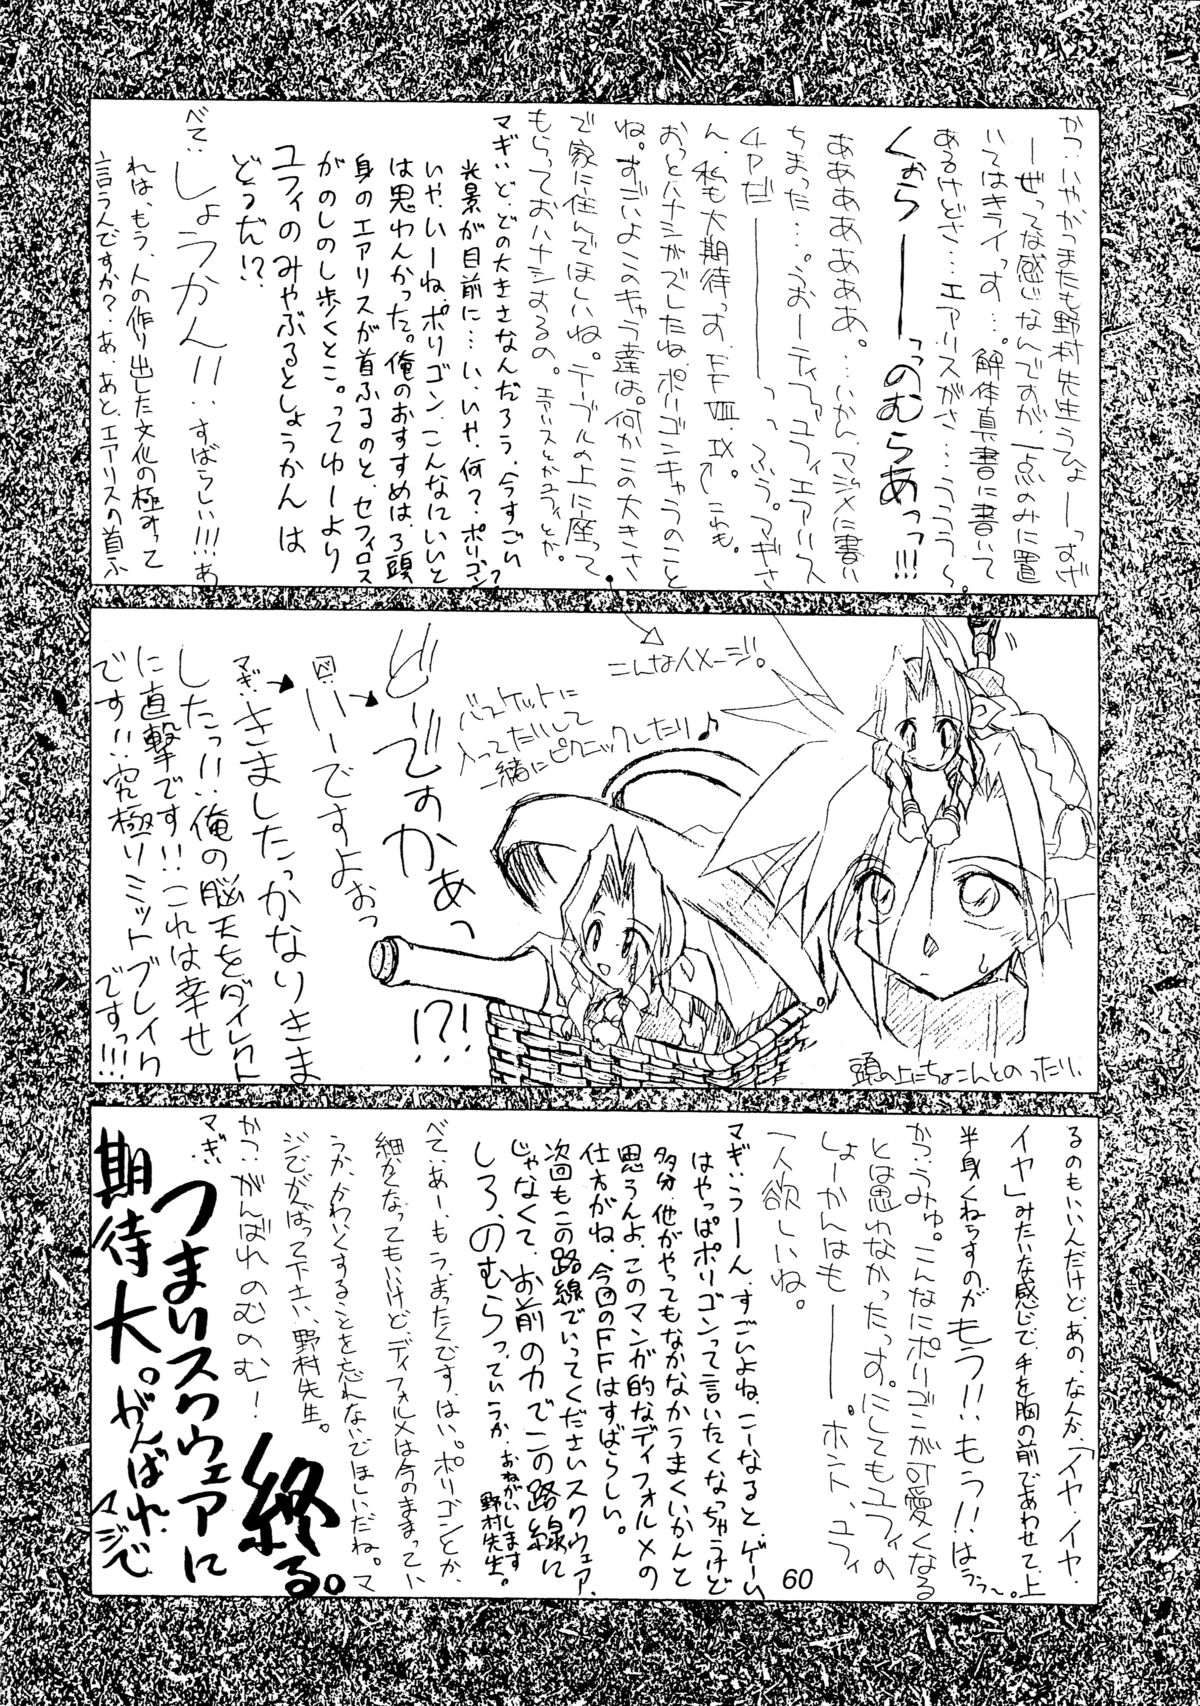 かつ‥いやかつまたも野村先生うひょーっすげ
ーぜってな感じなんですが、一点のみに置
いてはキライっす…。解体真書に書いて
あるけどさ…エアリスがさ…ううう～。
くぉらーーっっのむらあっ!!!
ああああああああ。…いかん、マジメに書い
ちまった…。うおーティファユフィエアリス
チャだーーーーっっ ふう。マギさ
ん、私も大期待っす、FFⅧ、Ⅸ。これも。
おっとハナシがズレたね、ポリゴンキャラのこと
ね。すごいよこのキャラ達は。何かこの大きさ
で家に住んでほしいね。テーブルの上に座って
もらっておハナシするの。エアリスとかユフィとか。
マギ‥ど、どの大きさなんだろう、今すごい
光景が目前に…い、いや、何？ポリゴン？
いや、いーね、ポリゴン、こんなにいいと
は思わんかった。俺のおすすめは、3頭
身のエアリスが首ふるのと、セフィロス
がのしのし歩くとこ。ってゆーより
ユフィのみやぶるとしょうかんは
どうだ!?
べて‥しょうかん!!‥すばらしい!!!あ
れは、もう、人の作り出した文化の極みって
言うんですか？あ、あと、エアリスの首ふ
こんなイメージ。
頭の上にちょこんとのったり、
バスケットに
入ってたりして
一緒にピクニックしたり♪
ど‥ですかあっ!?!
いーですよおっ
マギ‥きましたっかなりきま
したっ!!!俺の脳天をダイレクト
に直撃です!!これは幸せ
です!!‥究極リミットブレイク
ですっ!!!
るのもいいんだけど、あの、なんか、「イヤ、イヤ、
イヤ」みたいな感じで、手を胸の前であわせて、上
半身くねらすのがもう!!‥もう!!はううー。
かつ‥うみゅ。こんなにポリゴンが可愛くなる
とは思わなかったっす。にしてもユフィの
しょーかんはもーーー。ホント、ユフィ
一人欲しいね。
マギ‥うーん、すごいよね、こーなると、ゲーム
はやっぱポリゴンって言いたくなっちゃうけど
多分、他がやってもなかなかうまくいかんと
思うんよ、このマンガ的なディフォルメの
仕方がね、今回のFFはすばらしい。
次回もこの路線でいってくださいスクウェア、
じゃなくて、お前の力でこの路線に
しろ、のむらっ、ていうか、おねがいします
野村先生。
べて‥あー、もう、まったくです、はい。ポリゴンとか、
細かくなってもいいけどディフォルメは今のままってい
うか、かわいくすることを忘れないでほしいだね。マ
ジでがんばって下さい、野村先生。
かつ‥がんばれのむのむ！
マギ‥つまりスクウェアに
期待大。がんばれ、マジで
終る。
60